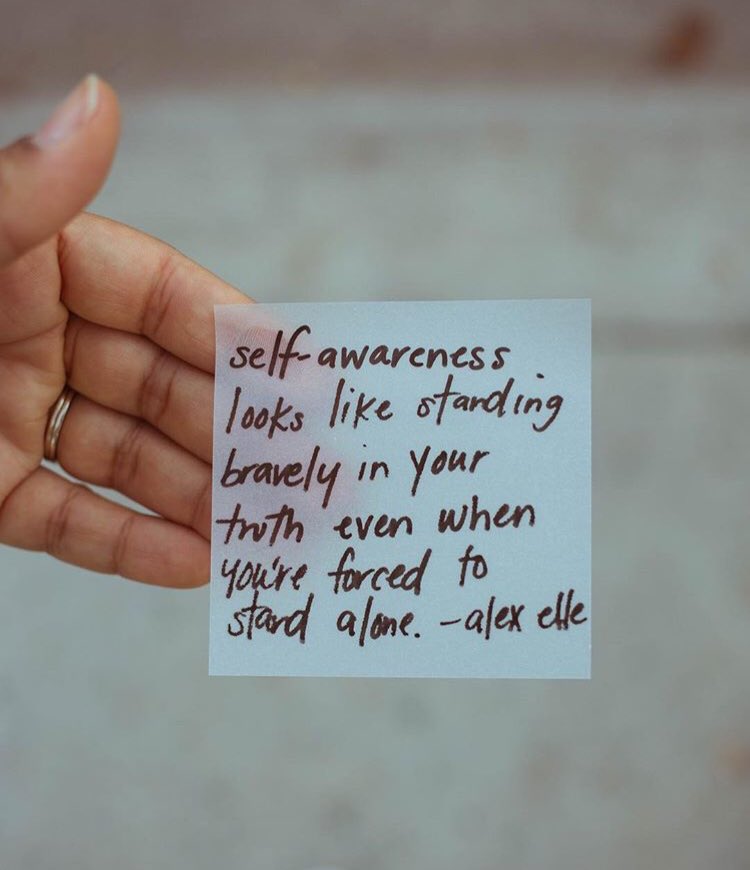 self-awareness
looks like standing
bravely in your
truth even when
you're forced to
stand alone. -alex elle